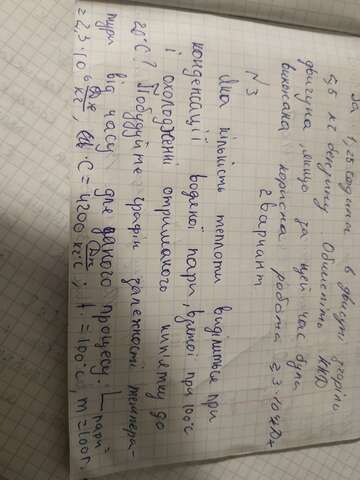 За 1,25 години в двигуні згоріло
5,5 кг бензину. Обчисліть ККД
двигуна, якщо за цей час була
виконана корисна робота 2,3·10⁴кДж
2 варіант
№3
Яка кількість теплоти виділиться при
конденсації водяної пари, взятої при 100°C
і охолодженні отриманого кипятку до
20°C? Побудуйте графік залежності темпера-
тури від часу для даного процесу. Lпари=
=2,3·10⁶ Дж/кг, C=4200 Дж/кг·°C; t=100°C; m=100г.